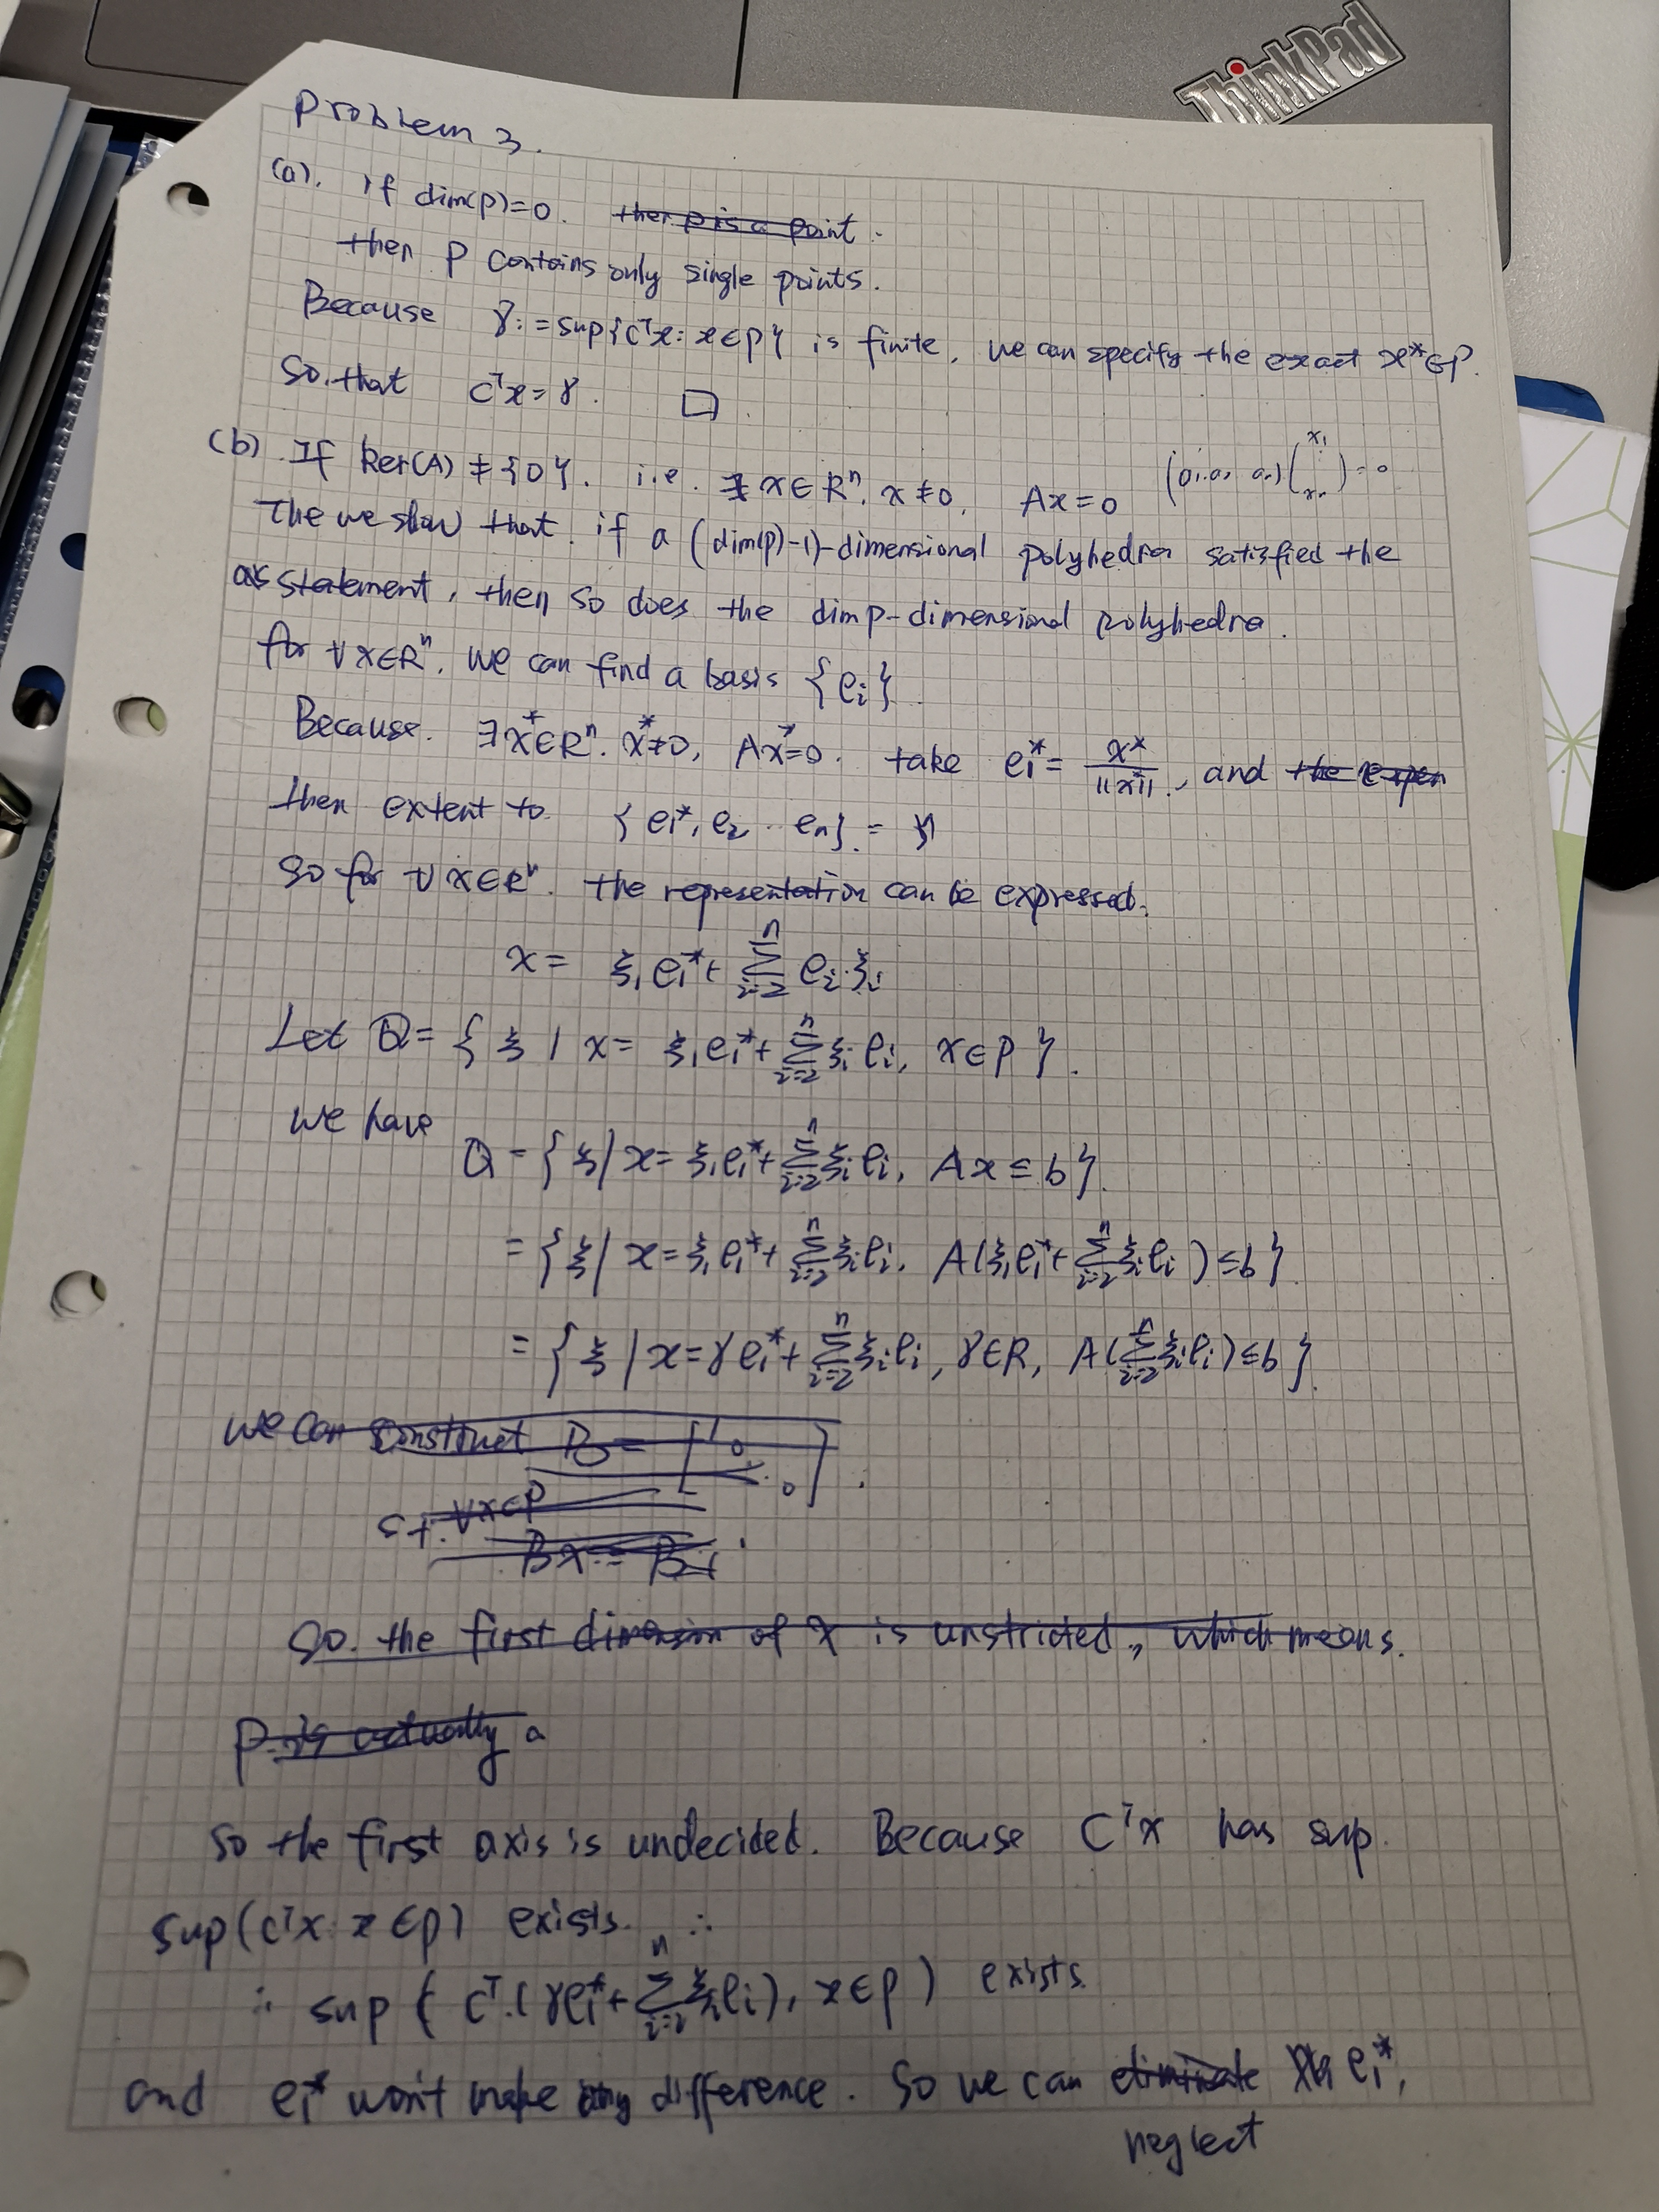 ThinkPad
Problem 3.
(a). If dim(p)=0. then p is a point.
then P contains only single points.
Because γ:=sup{cᵀx: x∈P} is finite, we can specify the exact x*∈P.
So that cᵀx=γ. □
(b) If ker(A) ≠ {0}. i.e. ∃ x∈Rⁿ. x≠0, Ax=0
The we show that if a (dim(p)-1)-dimensional polyhedra satisfied the
statement, then so does the dimp-dimensional polyhedra.
for ∀x∈Rⁿ. we can find a basis {eᵢ}
Because. ∃x*∈Rⁿ. x*≠0, Ax*=0. take e₁* = x*/||x*||, and the
then extent to {e₁*, e₂ .. eₙ}. =
So for ∀x∈Rⁿ. the representation can be expressed.
x = ξ₁e₁* + Σⁿᵢ₌₂ eᵢξᵢ
Let Q = { ξ | x = ξ₁e₁* + Σⁿᵢ₌₂ ξᵢeᵢ, x∈P }.
we have
Q = { ξ | x = ξ₁e₁* + Σⁿᵢ₌₂ ξᵢeᵢ, Ax ≤ b }.
= { ξ | x = ξ₁e₁* + Σⁿᵢ₌₂ ξᵢeᵢ, A(ξ₁e₁* + Σⁿᵢ₌₂ ξᵢeᵢ) ≤ b }.
= { ξ | x = γe₁* + Σⁿᵢ₌₂ ξᵢeᵢ, γ∈R, A(Σⁿᵢ₌₂ ξᵢeᵢ) ≤ b }.
we can construct B =
s.t. ∀x∈P
So. the first dimension of x is unstricted, which means.
P is actually a
so the first axis is undecided. Because Cᵀx has sup.
sup(cᵀx x∈p) exists. ∴
∴ sup ( cᵀ.(γe₁* + Σⁿᵢ₌₂ ξᵢeᵢ), x∈p ) exists.
and e₁* won't make any difference. So we can eliminate e₁*,
neglect